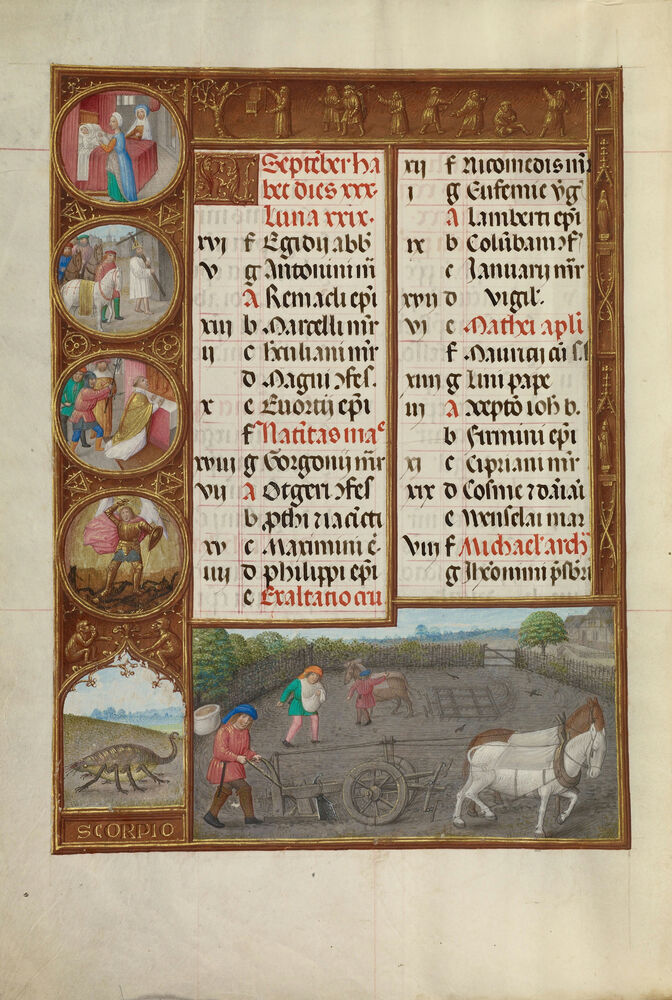 KL Septēber ha
bet dies xxx.
Luna xxix.
xvi f Egidij abb̄
v g Antonini m̄
A Remacli ep̄i
xiii b Marcelli mr̄
ii c
d Magni ↄfes.
x e Euortij ep̄i
f Natītas mae
xviii g Gorgonij mr̄
vii A Otgeri ↄfes
b ꝓthi ⁊ iacīcti
xv c Maximini ē
iiii d philippi ep̄i
e Exaltatio cru
xii f Nicomedis mr̄
i g Eufemie v̄g
A Lamberti ep̄i
ix b Colūbani ↄf
c Januarij mr̄
xvii d vigil'.
vi e Mathei apl̄i
f Mauricij cū s.s
xiiii g Lini pape
iii A ↄceptō ioh b.
b Firmini ep̄i
xi c Cipriani mr̄
xix d Cosme ⁊ damani
e Wenslai mar
viii f Michael' arch
g Jheronimi p̄sbri
SCORPIO